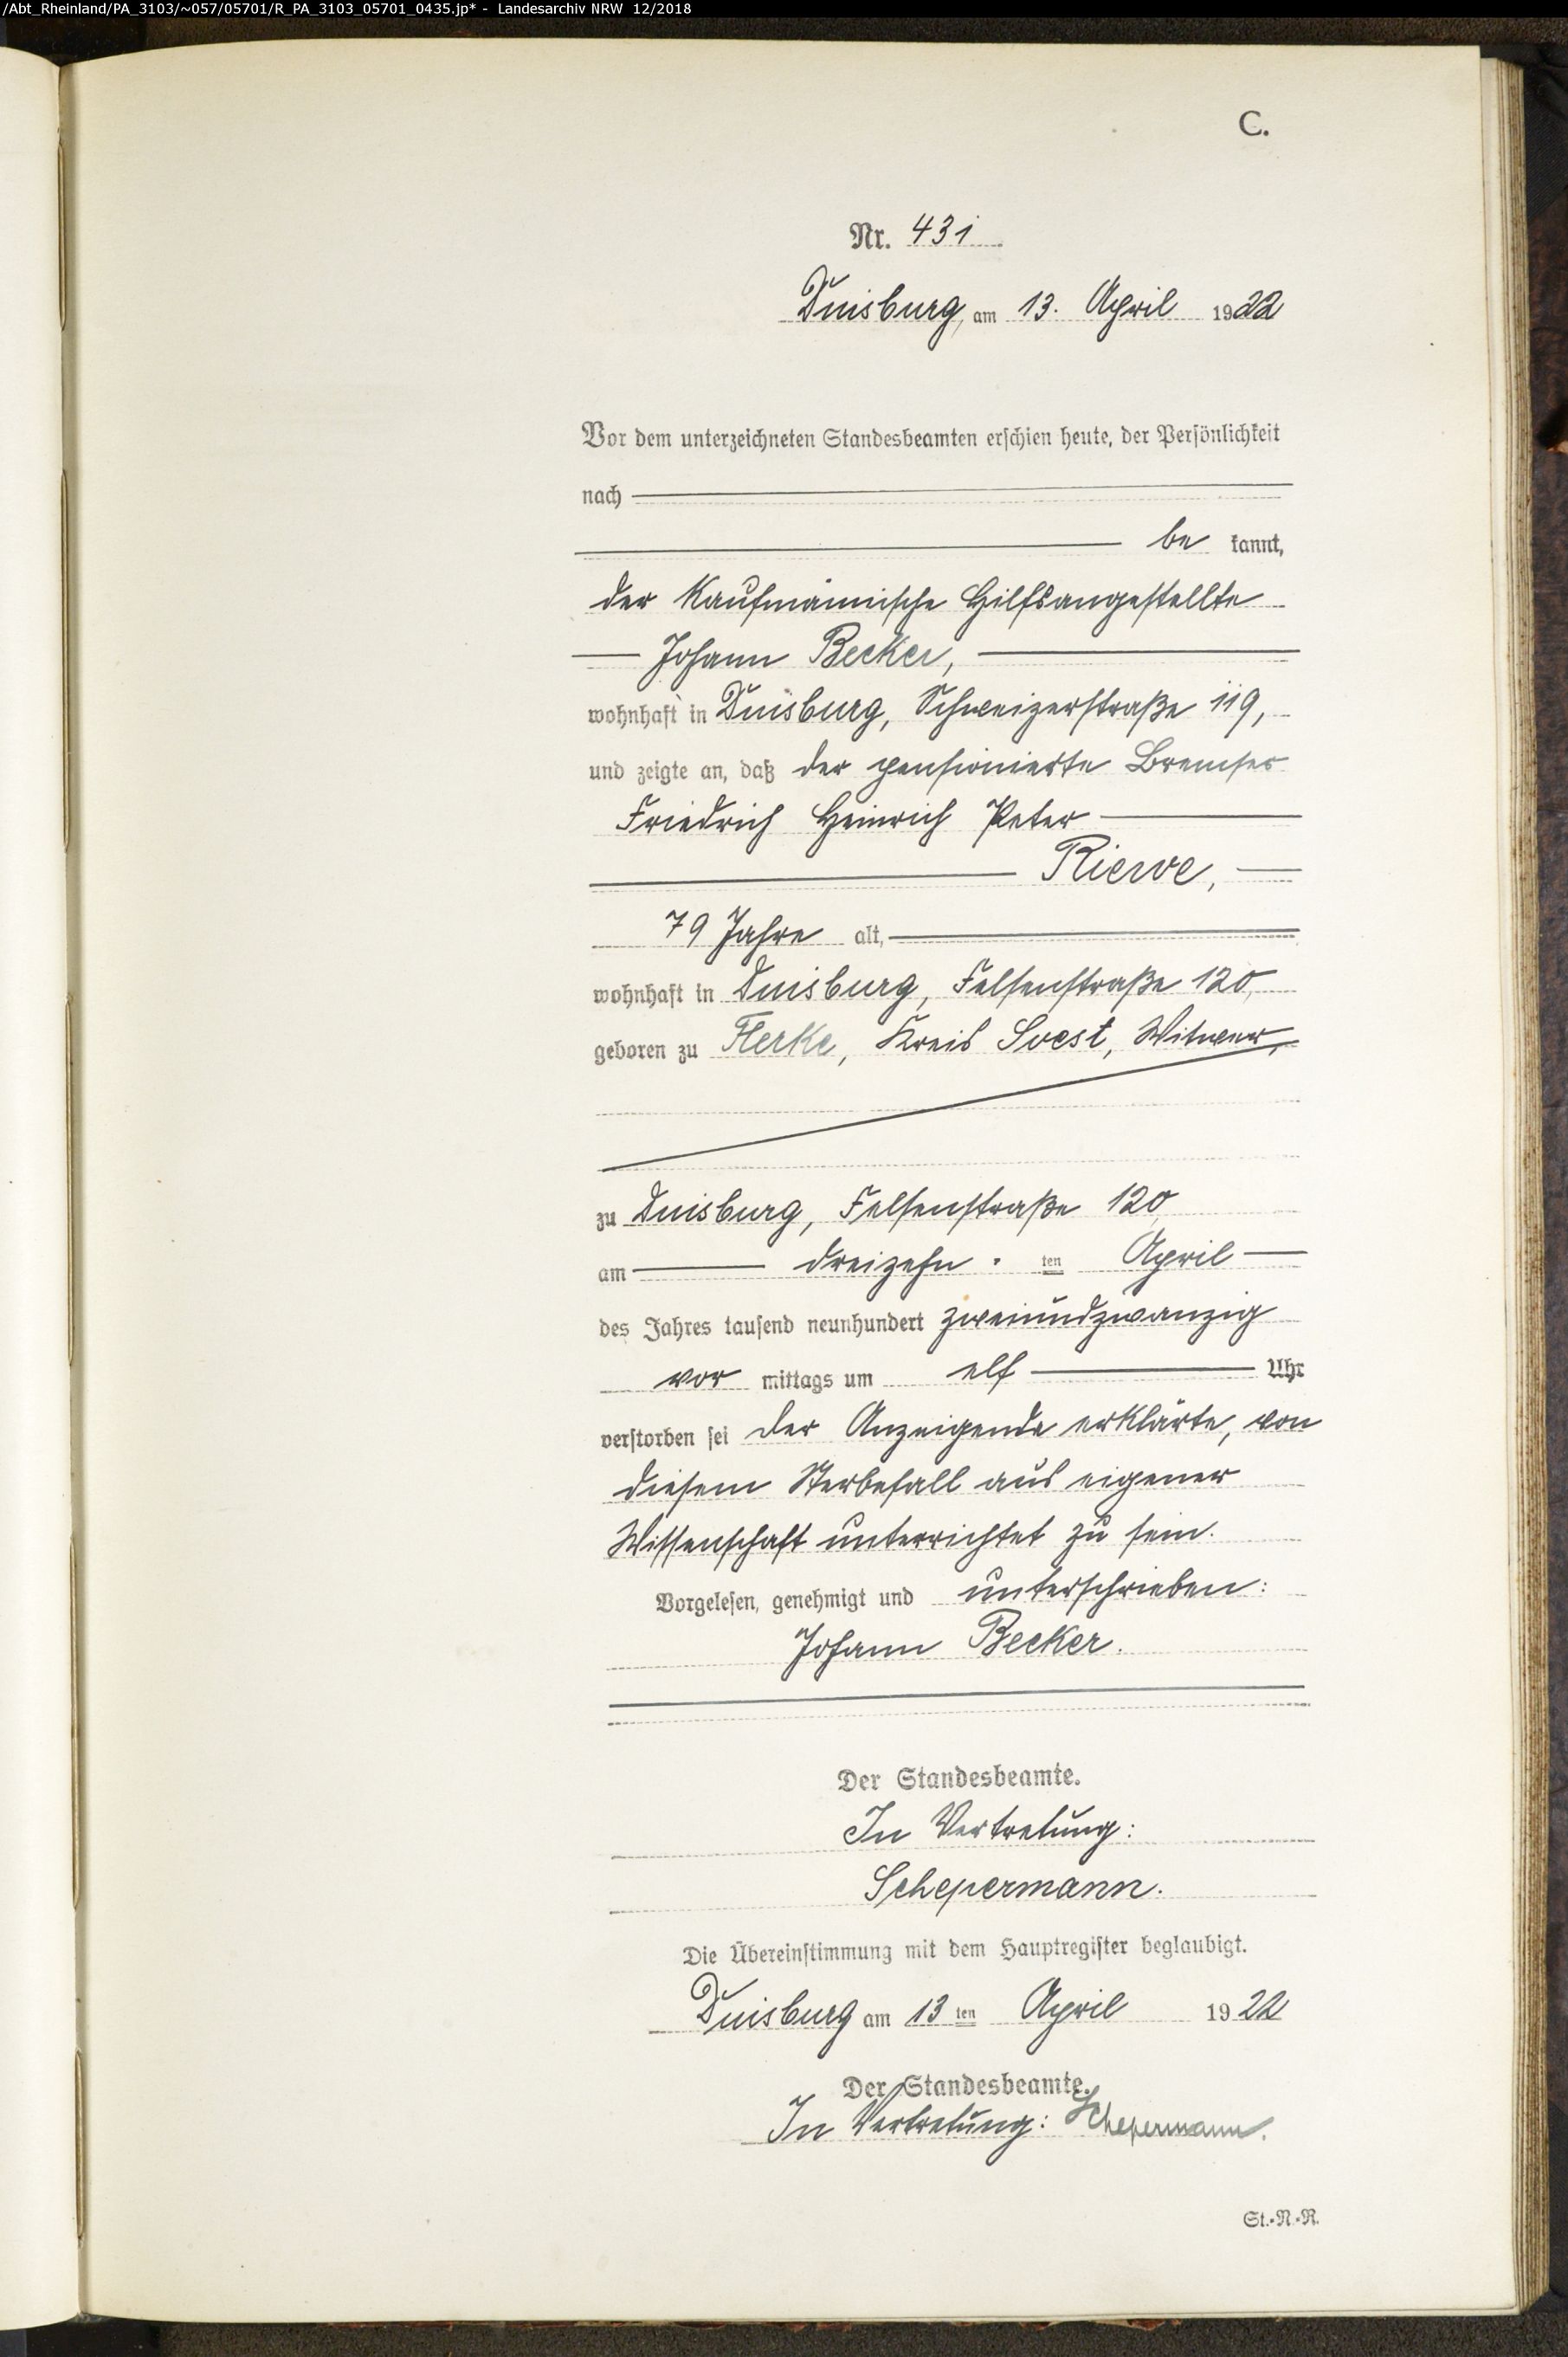 /Abt_Rheinland/PA_3103/~057/05701/R_PA_3103_05701_0435.jp* - Landesarchiv NRW 12/2018
C.
Nr. 431
Duisburg, am 13. April 1922
Vor dem unterzeichneten Standesbeamten erschien heute, der Persönlichkeit
nach
be kannt,
der Kaufmännische Hilfsangestellte
Johann Becker,
wohnhaft in Duisburg, Schweizerstraße 119,
und zeigte an, daß der pensionierte Bremser
Friedrich Heinrich Peter
Rierve,
79 Jahre alt,
wohnhaft in Duisburg, Felsenstraße 120,
geboren zu Flerke, Kreis Soest, Witwer,
zu Duisburg, Felsenstraße 120,
am dreizehn ten April
des Jahres tausend neunhundert zweiundzwanzig
vor mittags um elf Uhr
verstorben sei der Anzeigende erklärte, von
diesem Sterbefall aus eigener
Wissenschaft unterrichtet zu sein.
Vorgelesen, genehmigt und unterschrieben:
Johann Becker.
Der Standesbeamte.
In Vertretung:
Schepermann.
Die Übereinstimmung mit dem Hauptregister beglaubigt.
Duisburg am 13 ten April 1922
Der Standesbeamte.
In Vertretung: Schepermann.
St.-N.-R.